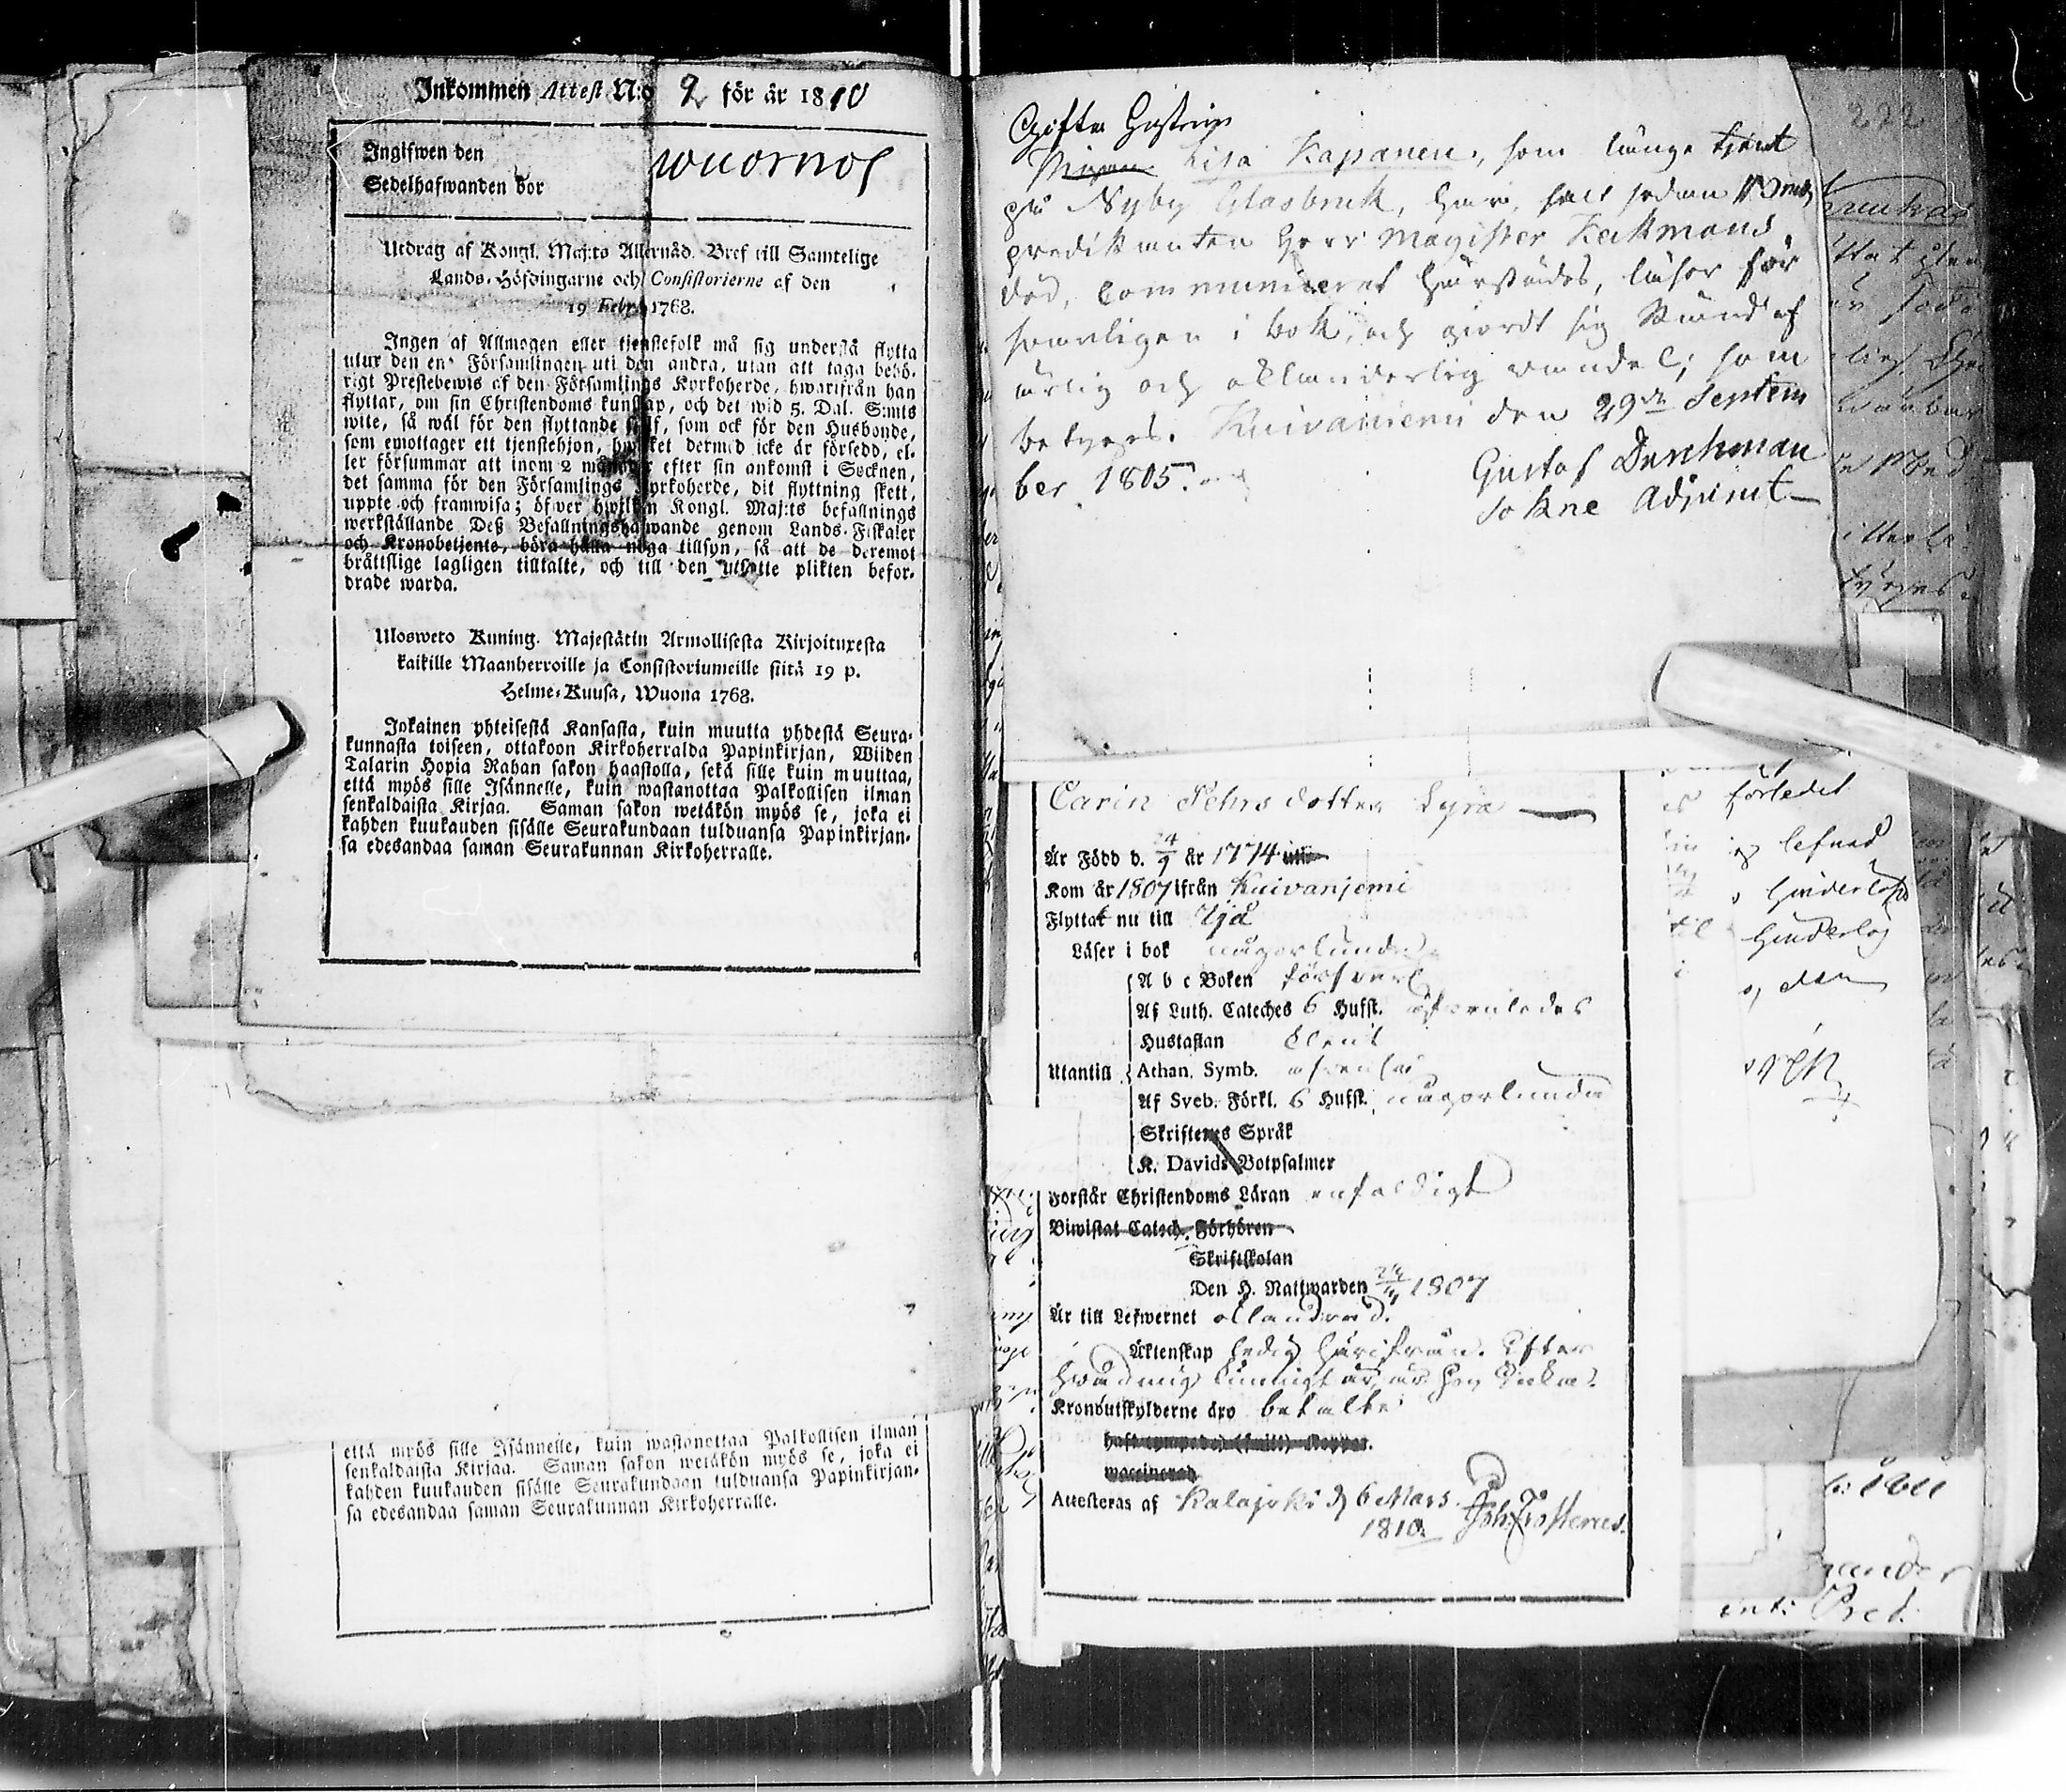 Inkommen Attest N:o 9 för år 1810
Ingifwen den
Sedelhafwanden bor
Utdrag af Kongl. Maj:ts Allernåd. Bref till Samtelige
Lands-Höfdingarne och Consistorierne af den
19 Febr. 1768.
Ingen af Allmogen eller tjenstefolk må sig understå flytta
utur den ena Församlingen uti den andra, utan att taga behö-
rigt Prestebewis af den Församlings Kyrkoherde, hwarifrån han
flyttar, om sin Christendoms kunskap, och det wid 5. Dal. S:mts
wite, så wäl för den flyttande sjelf, som ock för den Husbonde,
som emottager ett tjenstehjon, hwilket dermed icke är försedd, el-
ler försummar att inom 2 månader efter sin ankomst i Socknen,
det samma för den Församlings Kyrkoherde, dit flyttning skett,
uppte och framwisa; öfwer hwilken Kongl. Maj:ts befallnings
werkställande Deß Befallningshafwande genom Lands-Fiskaler
och Kronobetjente, böra hålla noga tillsyn, så att de deremot
bråttslige lagligen tilltalte, och till den utsatte plikten befor-
drade warda.
Ulosweto Kuning. Majestätin Armollisesta Kirjoituxesta
kaikille Maanherroille ja Consistoriumeille siitä 19 p.
Helme-Kuusa, Wuona 1768.
Jokainen yhteisestä Kansasta, kuin muutta yhdestä Seura-
kunnasta toiseen, ottakoon Kirkoherralda Papinkirjan, Wiiden
Talarin Hopia Rahan sakon haastolla, sekä sille kuin muuttaa,
että myös sille Isännelle, kuin wastanottaa Palkollisen ilman
senkaldaista Kirjaa. Saman sakon wetäkön myös se, joka ei
kahden kuukauden sisälle Seurakundaan tulduansa Papinkirjan-
sa edesandaa saman Seurakunnan Kirkoherralle.
että myös sille Isännelle, kuin wastanottaa Palkollisen ilman
senkaldaista Kirjaa. Saman sakon wetäkön myös se, joka ei
kahden kuukauden sisälle Seurakundaan tulduansa Papinkirjan-
sa edesandaa saman Seurakunnan Kirkoherralle.
Gifta Hustrun
Lisa Kapanen, som länge tjent
på Nyby Glasbruk, har, sedan
predikanten Herr Magister Keckmans
död, communicerat härstädes, läser för
swarligen i bok, och gjordt sig känd af
ärlig och oklanderlig wandel; som
betygas. Kuivaniemi den 29de Septem
ber 1805.
Gustaf Durchman
Sokne Adjunct
222
Carin Pehrs dotter Lyra
Är Född d. 24/9 år 1774
Kom år 1807 ifrån Kuivanjemi
Flyttat nu till Ijå
Läser i bok någorlunda
A b c Boken försvarl
Af Luth. Cateches 6 Hufst. äfvenledes
Hustaflan klent
Utantill Athan. Symb. äfvenså
Af Sveb. Förkl. 6 Hufst. någorlunda
Skriftenes Språk
K. Davids Botpsalmer
Forstår Christendoms Läran enfaldigt
Biwistat Catech. Förhören
Skriftskolan
Den H. Nattwarden 1807
Är till Lefwernet oklandrad.
Äktenskap ledig härifrån. Efter
hwad mig kunnigt är, är hon Enka.
Kronoutskylderne äro betalte
Attesteras af Kalajoki d 6 Mars
1810. Joh. Frosterus.
förledet